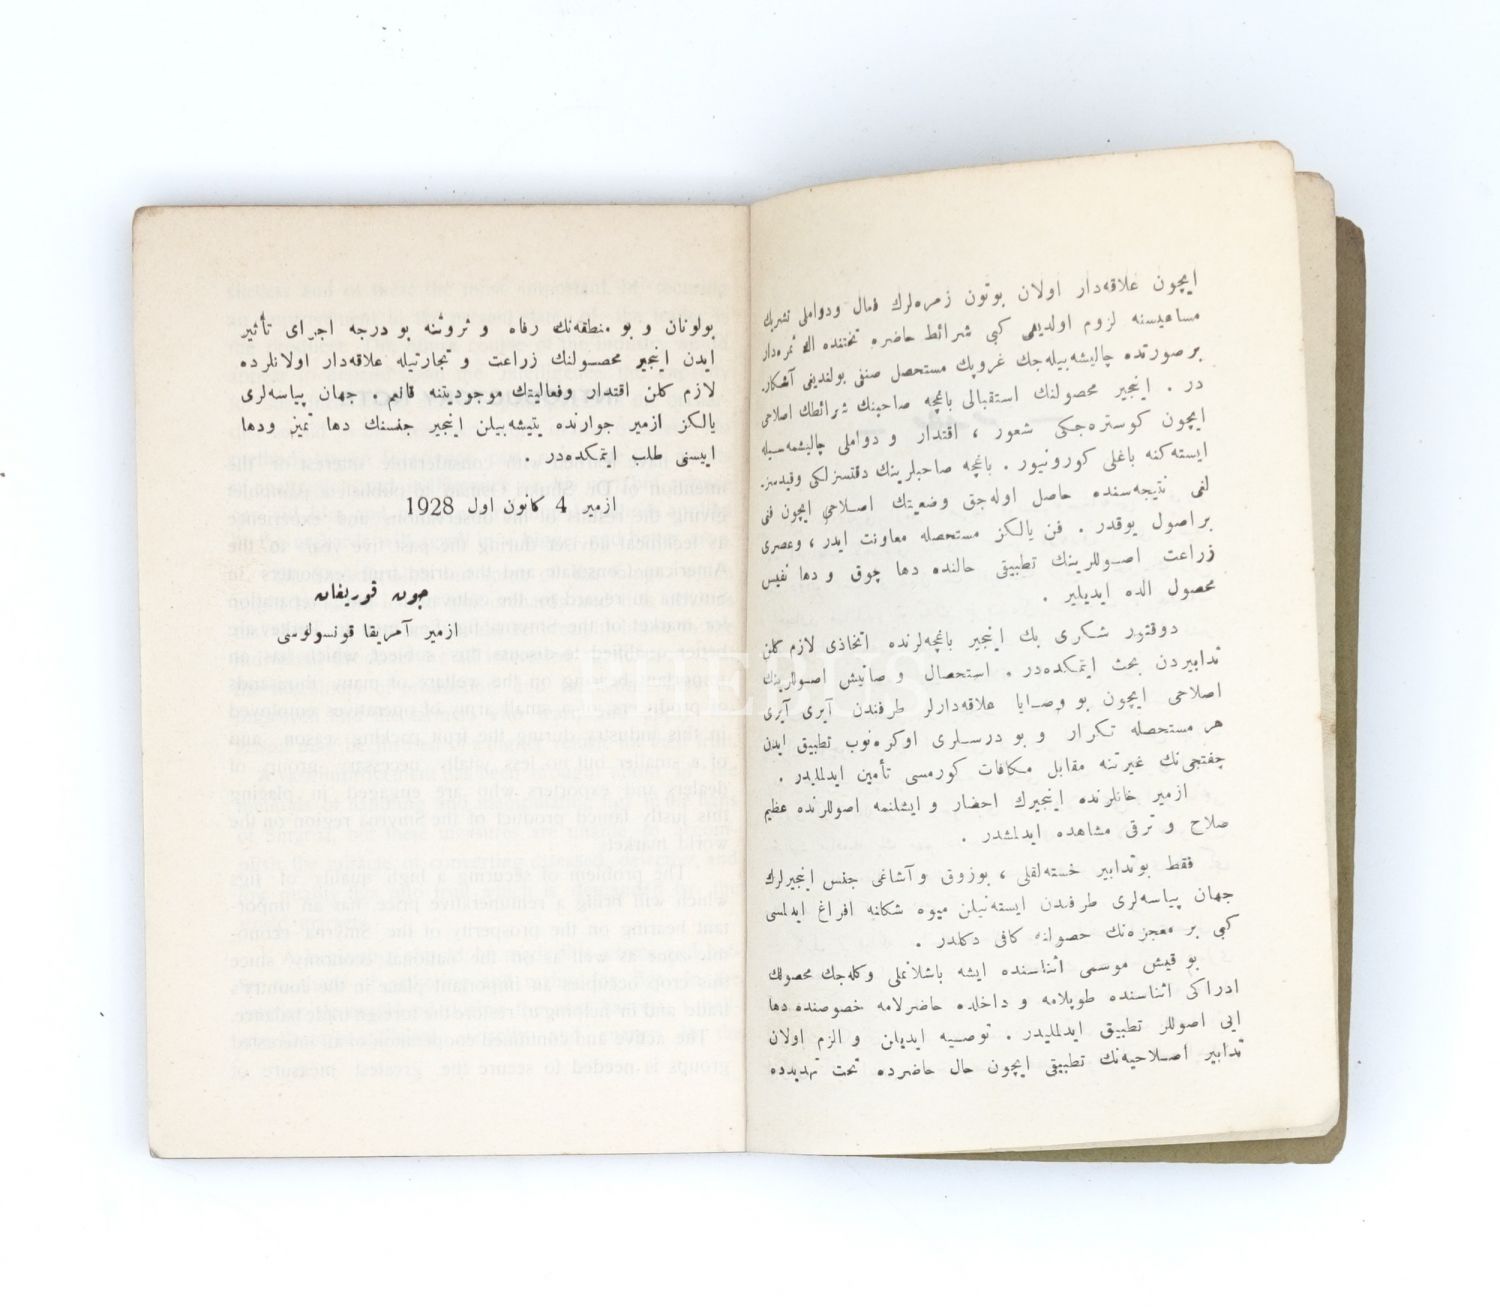 ایچون علاقه‌دار اولان بوتون زمره‌لرك فعال ودواملی تشریك
مساعیسنه لزوم اولدیغی كبی شرائط حاضره تحتنده الك ثمره‌دار
برصورتده چالیشه‌بیله‌جك غروپك مستحصل صنفی بولندیغی آشكار.
در . اینجیر محصولنك استقبالی باغچه صاحبنك شرائطك اصلاحی
ایچون كوستره‌جكی شعور ، اقتدار و دواملی چالیشمه‌سیله
ایسته‌كنه باغلی كورونیور . باغچه صاحبلرینك دقتسزلكی وقیدسز.
لغی نتیجه‌سنده حاصل اوله‌جق وضعیتك اصلاحی ایچون فنی
براصول یوقدر . فن یالكز مستحصله معاونت ایدر ، وعصری
زراعت اصوللرینك تطبیقی حالنده دها چوق و دها نفیس
محصول الده ایدیلیر .
دوقتور شكری بك اینجیر باغچه‌لرنده اتخاذی لازم كلن
تدابیردن بحث ایتمكده‌در . استحصال و صاتیش اصوللرینك
اصلاحی ایچون بو وصایا علاقه‌دارلر طرفندن آیری آیری
هر مستحصله تكرار و بو درسلری اوكره‌نوب تطبیق ایدن
چفتجی‌نك غیرتنه مقابل مكافات كورمسی تأمین ایدلملیدر .
ازمیر خانلرنده اینجیرك احضار و ایشلنمه اصوللرنده عظیم
صلاح و ترقی مشاهده ایدلمشدر .
فقط بوتدابیر خسته‌لقلی ، بوزوق و آشاغی جنس اینجیرلرك
جهان پیاسه‌لری طرفندن ایسته‌نیلن میوه شكلنه افراغ ایدلمسی
كبی بر معجزه‌نك حصولنه كافی دكلدر .
بو قیش موسمی اثناسنده ایشه باشلانملی وكله‌جك محصولك
ادراكی اثناسنده طوپلامه و داخلده حاضرلامه خصوصنده دها
ایی اصوللر تطبیق ایدلملیدر . توصیه ایدیلن و الزم اولان
تدابیر اصلاحیه‌نك تطبیقی ایچون حال حاضرده تحت تهدیدده
بولونان و بو منطقه‌نك رفاه و ثروتنه بو درجه اجرای تأثیر
ایدن اینجیر محصولنك زراعت و تجارتیله علاقه‌دار اولانلرده
لازم كلن اقتدار وفعالیتك موجودیتنه قانعم . جهان پیاسه‌لری
یالكز ازمیر جوارنده یتیشه‌بیلن اینجیر جنسنك دها تمیز ودها
اییسنی طلب ایتمكده‌در .
ازمیر 4 كانون اول 1928
جون قوریغان
ازمیر آمریقا قونسولوسی